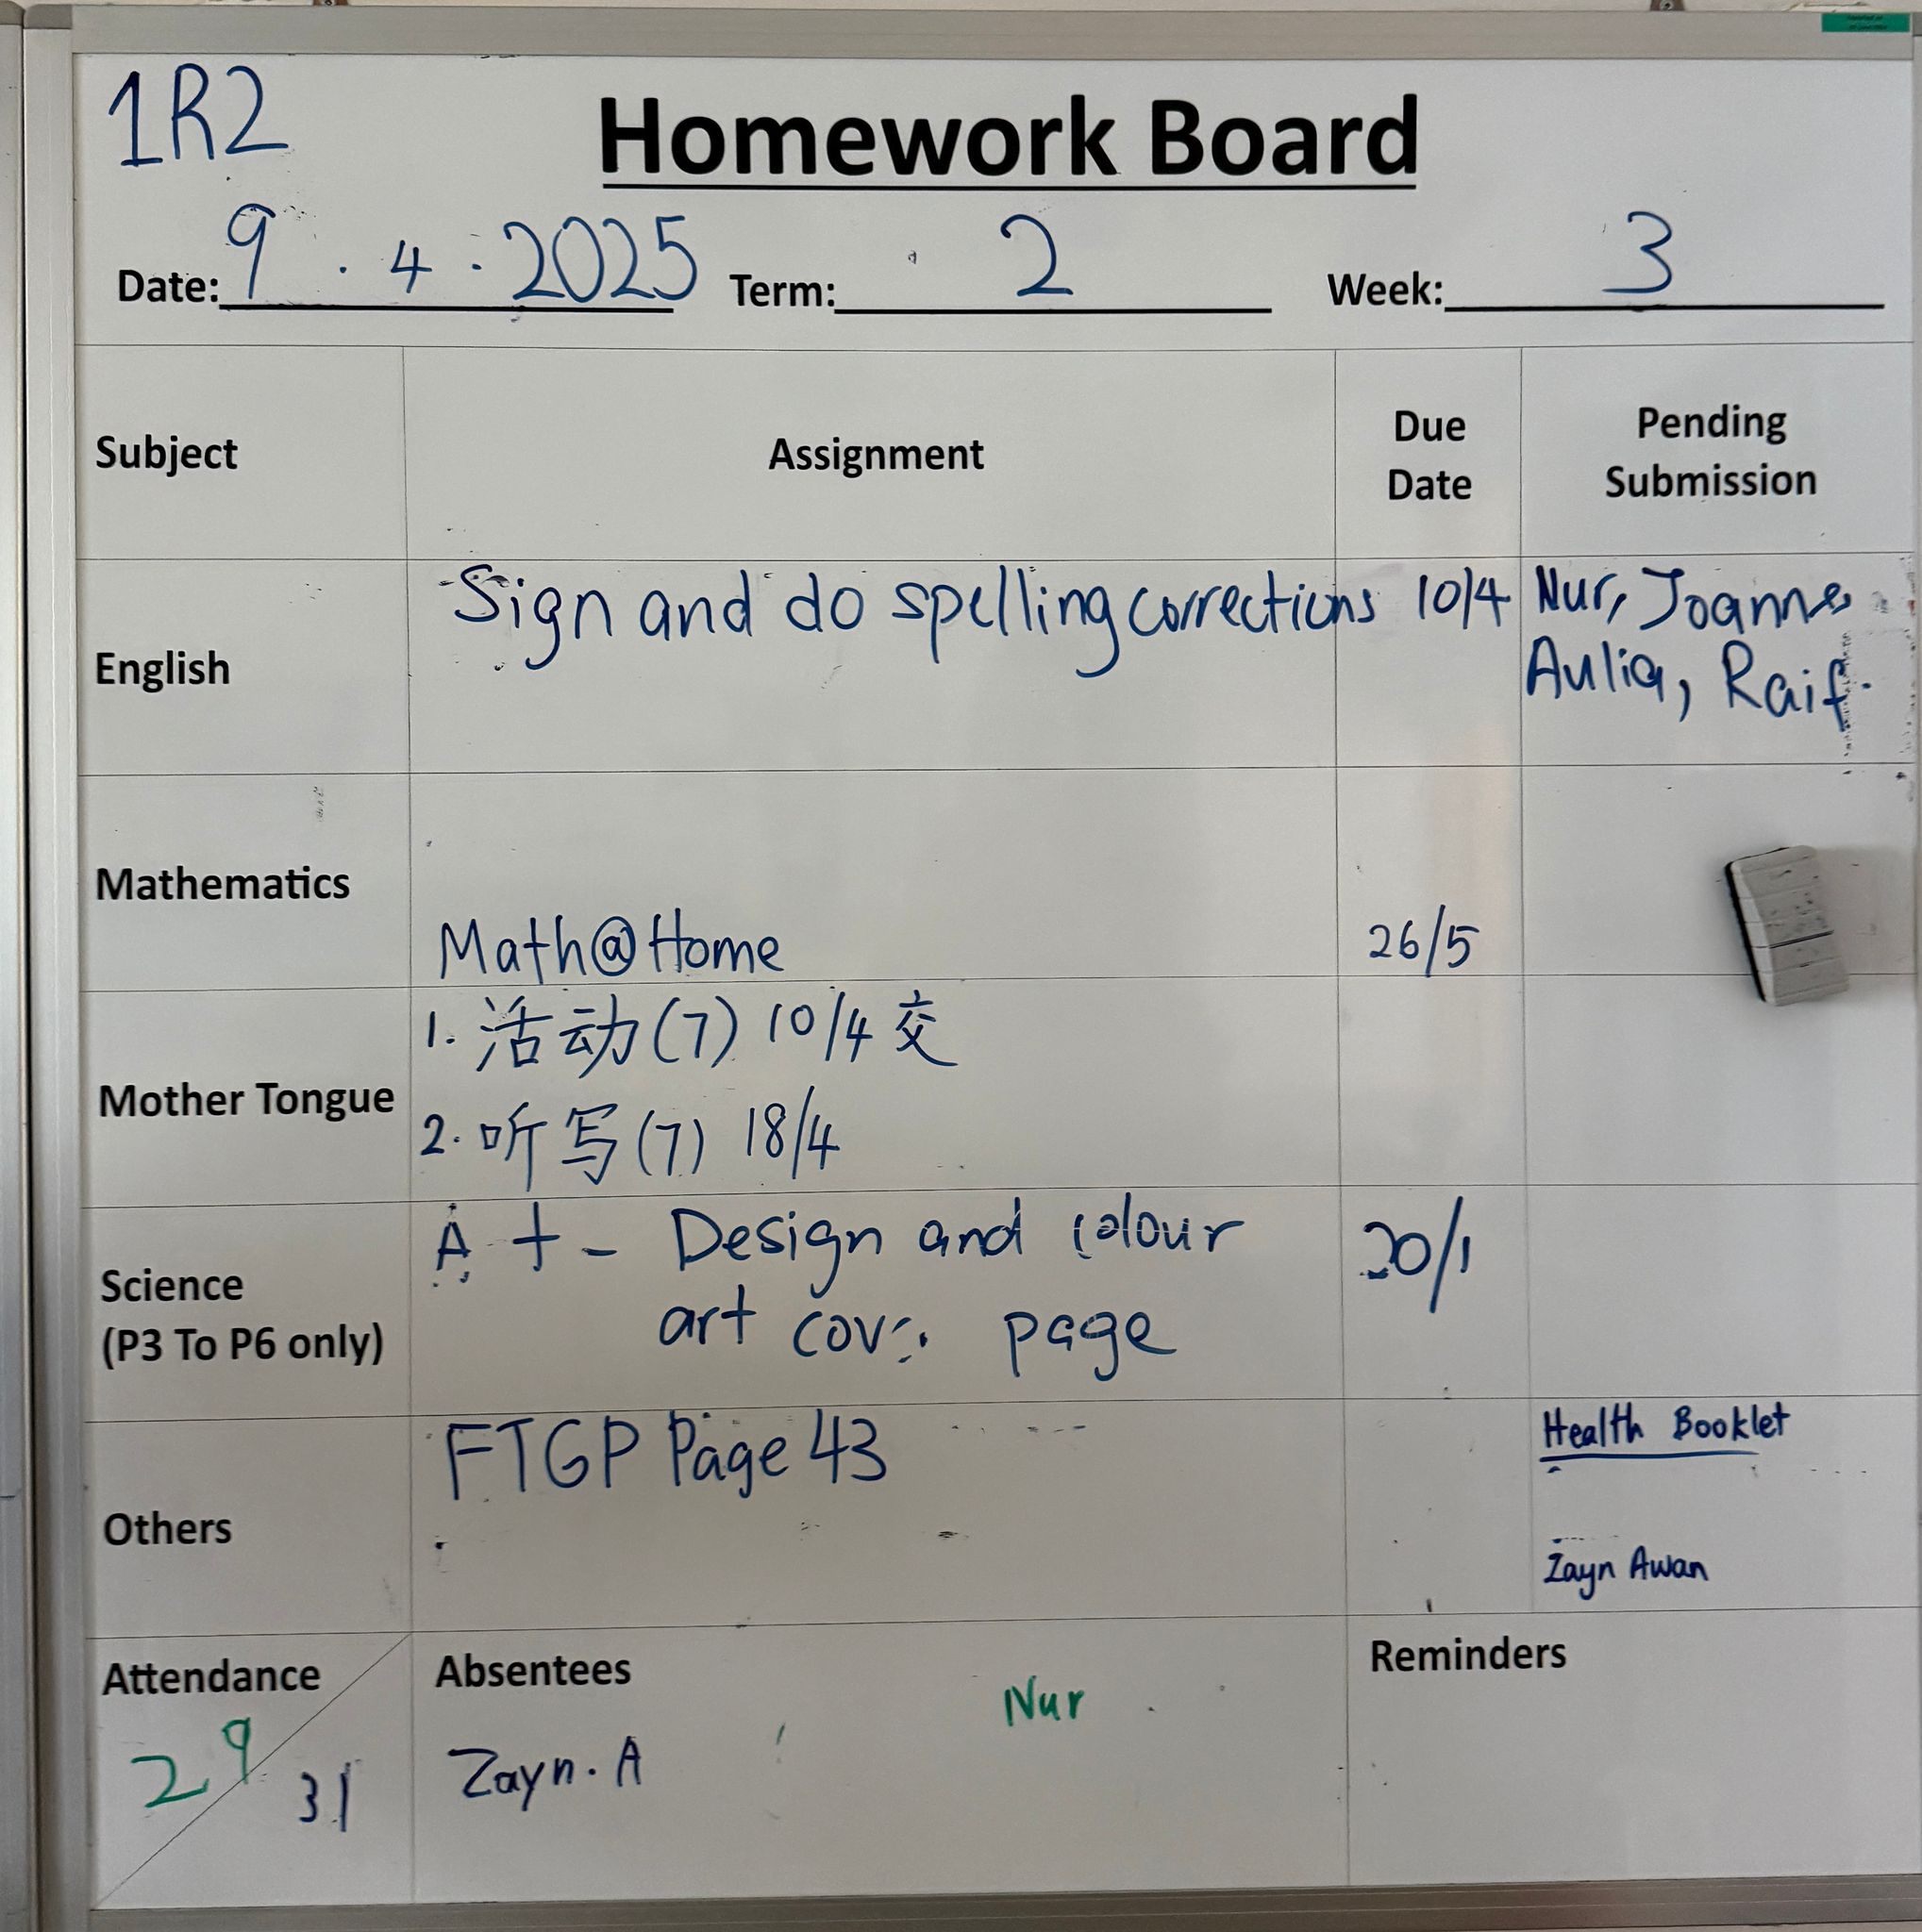 1R2
Homework Board
Date: 9 . 4 . 2025 Term: 2 Week: 3
Subject Assignment Due Date Pending Submission
English Sign and do spelling corrections 10/4 Nur, Joanne,
Aulia, Raif.
Mathematics
Math@Home 26/5
Mother Tongue
1. 活动(7) 10/4 交
2. 听写(7) 18/4
Science
(P3 To P6 only)
A t - Design and colour 20/1
art page
Others
FTGP Page 43
Health Booklet
Zayn Awan
Attendance
29 31
Absentees
Nur
Zayn. A
Reminders